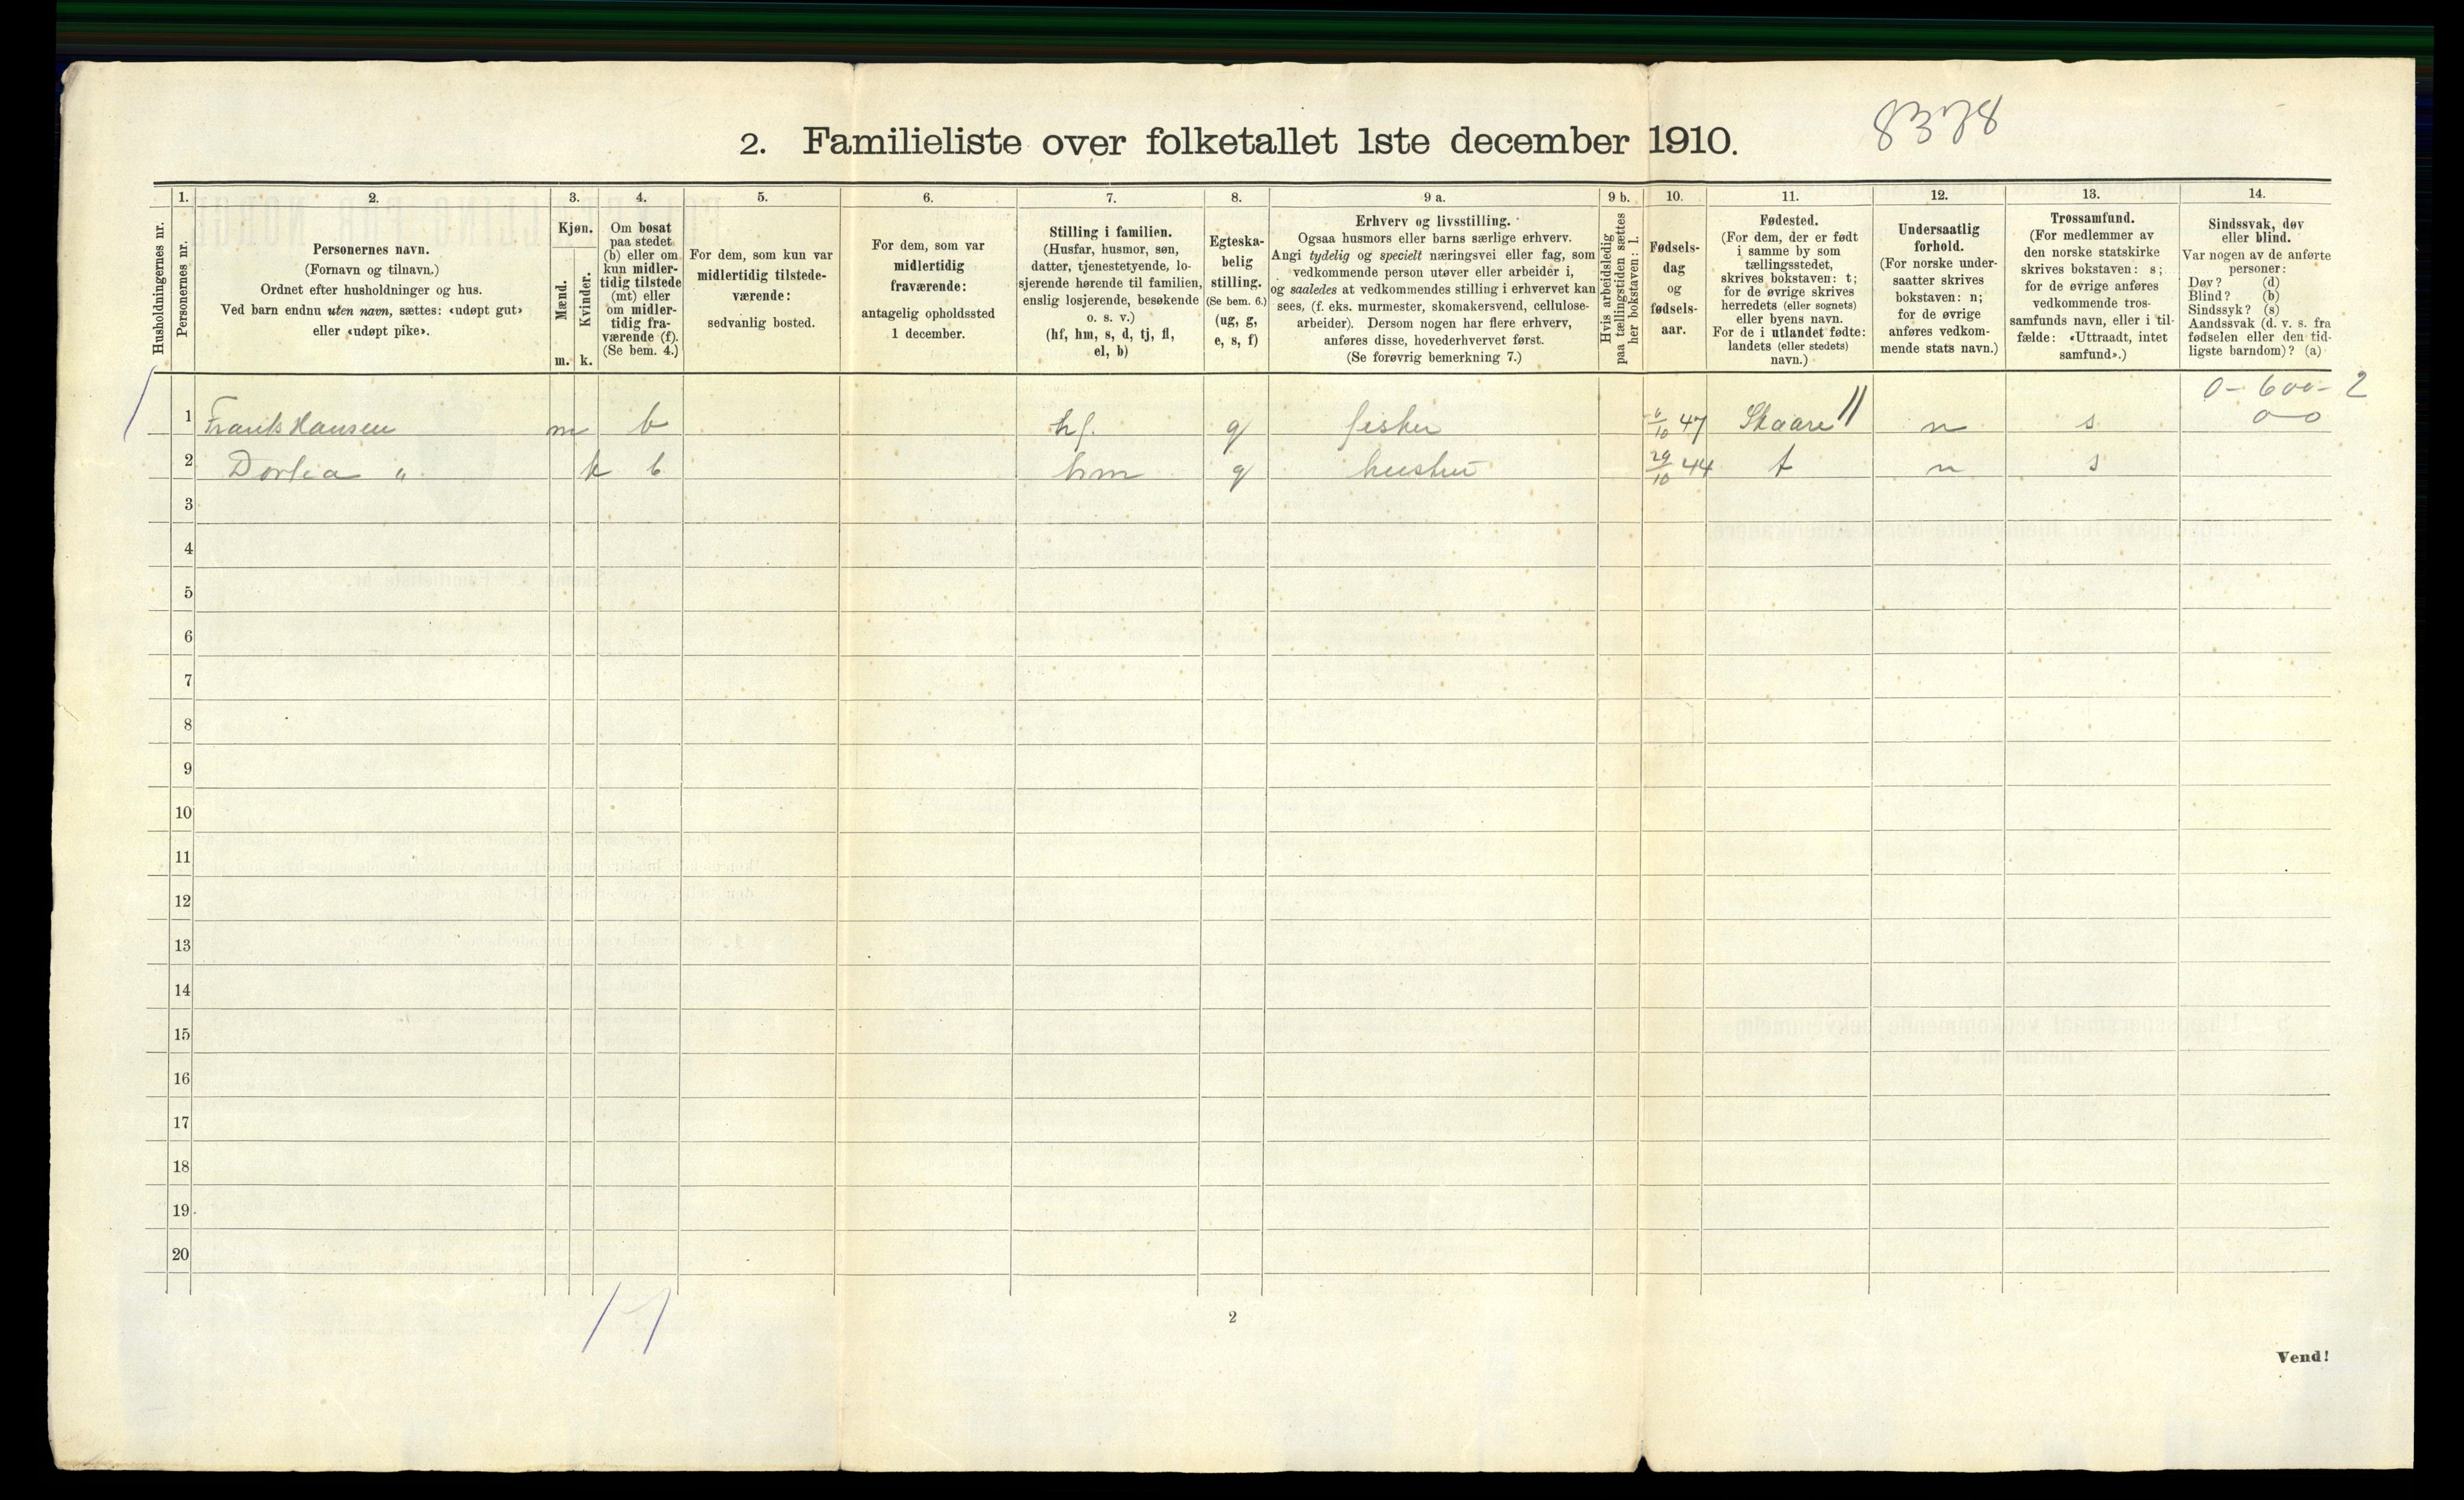 8328
2. Familieliste over folketallet 1ste december 1910.
Husholdningernes nr.
1.
Personernes nr.
2.
Personernes navn.
(Fornavn og tilnavn.)
Ordnet efter husholdninger og hus.
Ved barn endnu uten navn, sættes: «udøpt gut»
eller «udøpt pike».
3.
Kjøn.
Mænd.
m.
Kvinder.
k.
4.
Om bosat
paa stedet
(b) eller om
kun midler-
tidig tilstede
(mt) eller
om midler-
tidig fra-
værende (f).
(Se bem. 4.)
5.
For dem, som kun var
midlertidig tilstede-
værende:
sedvanlig bosted.
6.
For dem, som var
midlertidig
fraværende:
antagelig opholdssted
1 december.
7.
Stilling i familien.
(Husfar, husmor, søn,
datter, tjenestetyende, lo-
sjerende hørende til familien,
enslig losjerende, besøkende
o. s. v.)
(hf, hm, s, d, tj, fl,
el, b)
8.
Egteska-
belig
stilling.
(Se bem. 6.)
(ug, g,
e, s, f)
9 a.
Erhverv og livsstilling.
Ogsaa husmors eller barns særlige erhverv.
Angi tydelig og specielt næringsvei eller fag, som
vedkommende person utøver eller arbeider i,
og saaledes at vedkommendes stilling i erhvervet kan
sees, (f. eks. murmester, skomakersvend, cellulose-
arbeider). Dersom nogen har flere erhverv,
anføres disse, hovederhvervet først.
(Se forøvrig bemerkning 7.)
9 b.
Hvis arbeidsledig
paa tællingstiden sættes
her bokstaven: l.
10.
Fødsels-
dag
og
fødsels-
aar.
11.
Fødested.
(For dem, der er født
i samme by som
tællingsstedet,
skrives bokstaven: t;
for de øvrige skrives
herredets (eller sognets)
eller byens navn.
For de i utlandet fødte:
landets (eller stedets)
navn.)
12.
Undersaatlig
forhold.
(For norske under-
saatter skrives
bokstaven: n;
for de øvrige
anføres vedkom-
mende stats navn.)
13.
Trossamfund.
(For medlemmer av
den norske statskirke
skrives bokstaven: s;
for de øvrige anføres
vedkommende tros-
samfunds navn, eller i til-
fælde: «Uttraadt, intet
samfund».)
14.
Sindssvak, døv
eller blind.
Var nogen av de anførte
personer:
Døv? (d)
Blind? (b)
Sindssyk? (s)
Aandssvak (d. v. s. fra
fødselen eller den tid-
ligste barndom)? (a)
0-600-2
0-0
1 Frants Hansen m b hf. g fisker 6/10 47 Skaare n s
2 Dortea " k b hm g hustru 29/10 44 t n s
3
4
5
6
7
8
9
10
11
12
13
14
15
16
17
18
19
20
1-1
2
Vend!